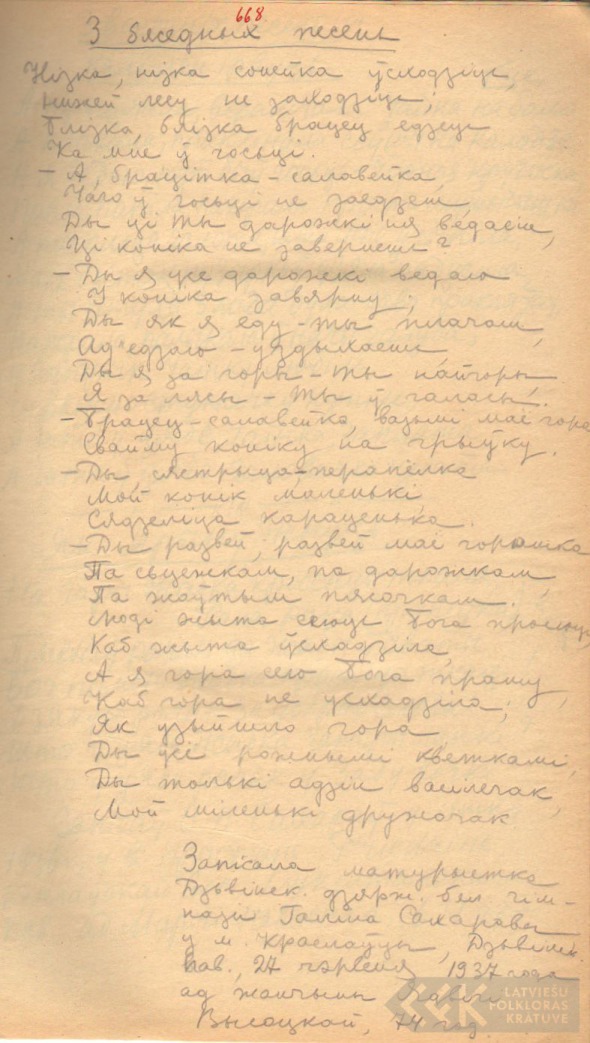 668
З бяседных песень
Нізка, нізка сонейка ўсходзіць,
Ніжей лесу не заходзіць;
Блізка, блізка брацец едзець
Ка мне ў госьці.
— А, брацітка-салавейка,
Чаго ў госьці не заедзеш,
Ды ці ты дарожкі ня ведаеш,
Ці коніка не завернеш?
— Ды я ўсе дарожкі ведаю
У коніка завярну;
Ды як я еду - ты плачаш,
Ад'едзаю - уздыхаеш,
Ды я за горы - ты
Я за лясы - ты ў галасы.
— Брацец-салавейка, вазьмі маё гора
Свайму коніку на грыўку.
— Ды, сястрыца-перапёлка
Мой конік маленькі
Сядзеліца караценька.
— Ды развей, развей маё горашка
Па сьцежкам, па дарожкам,
Па жоўтым пясочкам.
Людзі жыта сеюць Бога просюць,
Каб жыта ўсхадзіла,
А я гора сею Бога прашу,
Каб гора не усхадзіла;
Як узыйшло гора
Ды ўсё рожнымі кветкамі,
Ды толькі адзін васілечак,
Мой міленькі дружочак
Запісала матурыстка
Дзьвінск. дзярж. бел. гім-
назіі Галіна Сахарава
у м. Краслаўцы, Дзьвінск.
пав., 27 чэрвеня 1937 года
ад жанчыны
Высоцкай, 74 год
LATVIEŠU
FOLKLORAS
KRĀTUVE